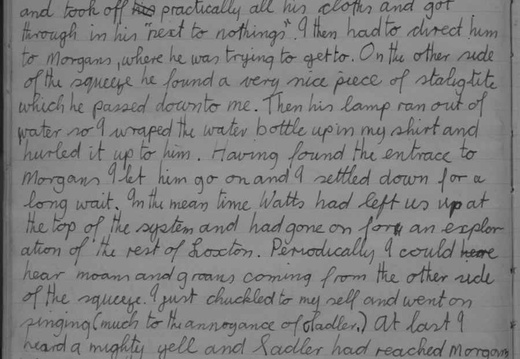 and took off his practically all his cloths and got
through in his "next to nothings". I then had to direct him
to Morgans, where he was trying to get to. On the other side
of the squeeze he found a very nice piece of staligtite
which he passed down to me. Then his lamp ran out of
water so I wraped the water bottle up in my shirt and
hurled it up to him. Having found the entrace to
Morgans I let him go on and I settled down for a
long wait. In the mean time Watts had left us up at
the top of the system and had gone on for an explor
ation of the rest of Loxton. Periodically I could here
hear moans and groans coming from the other side
of the squeeze. I just chuckled to my self and went on
singing (much to the annoyance of Sadler.) At last I
heard a mighty yell and Sadler had reached Morgans